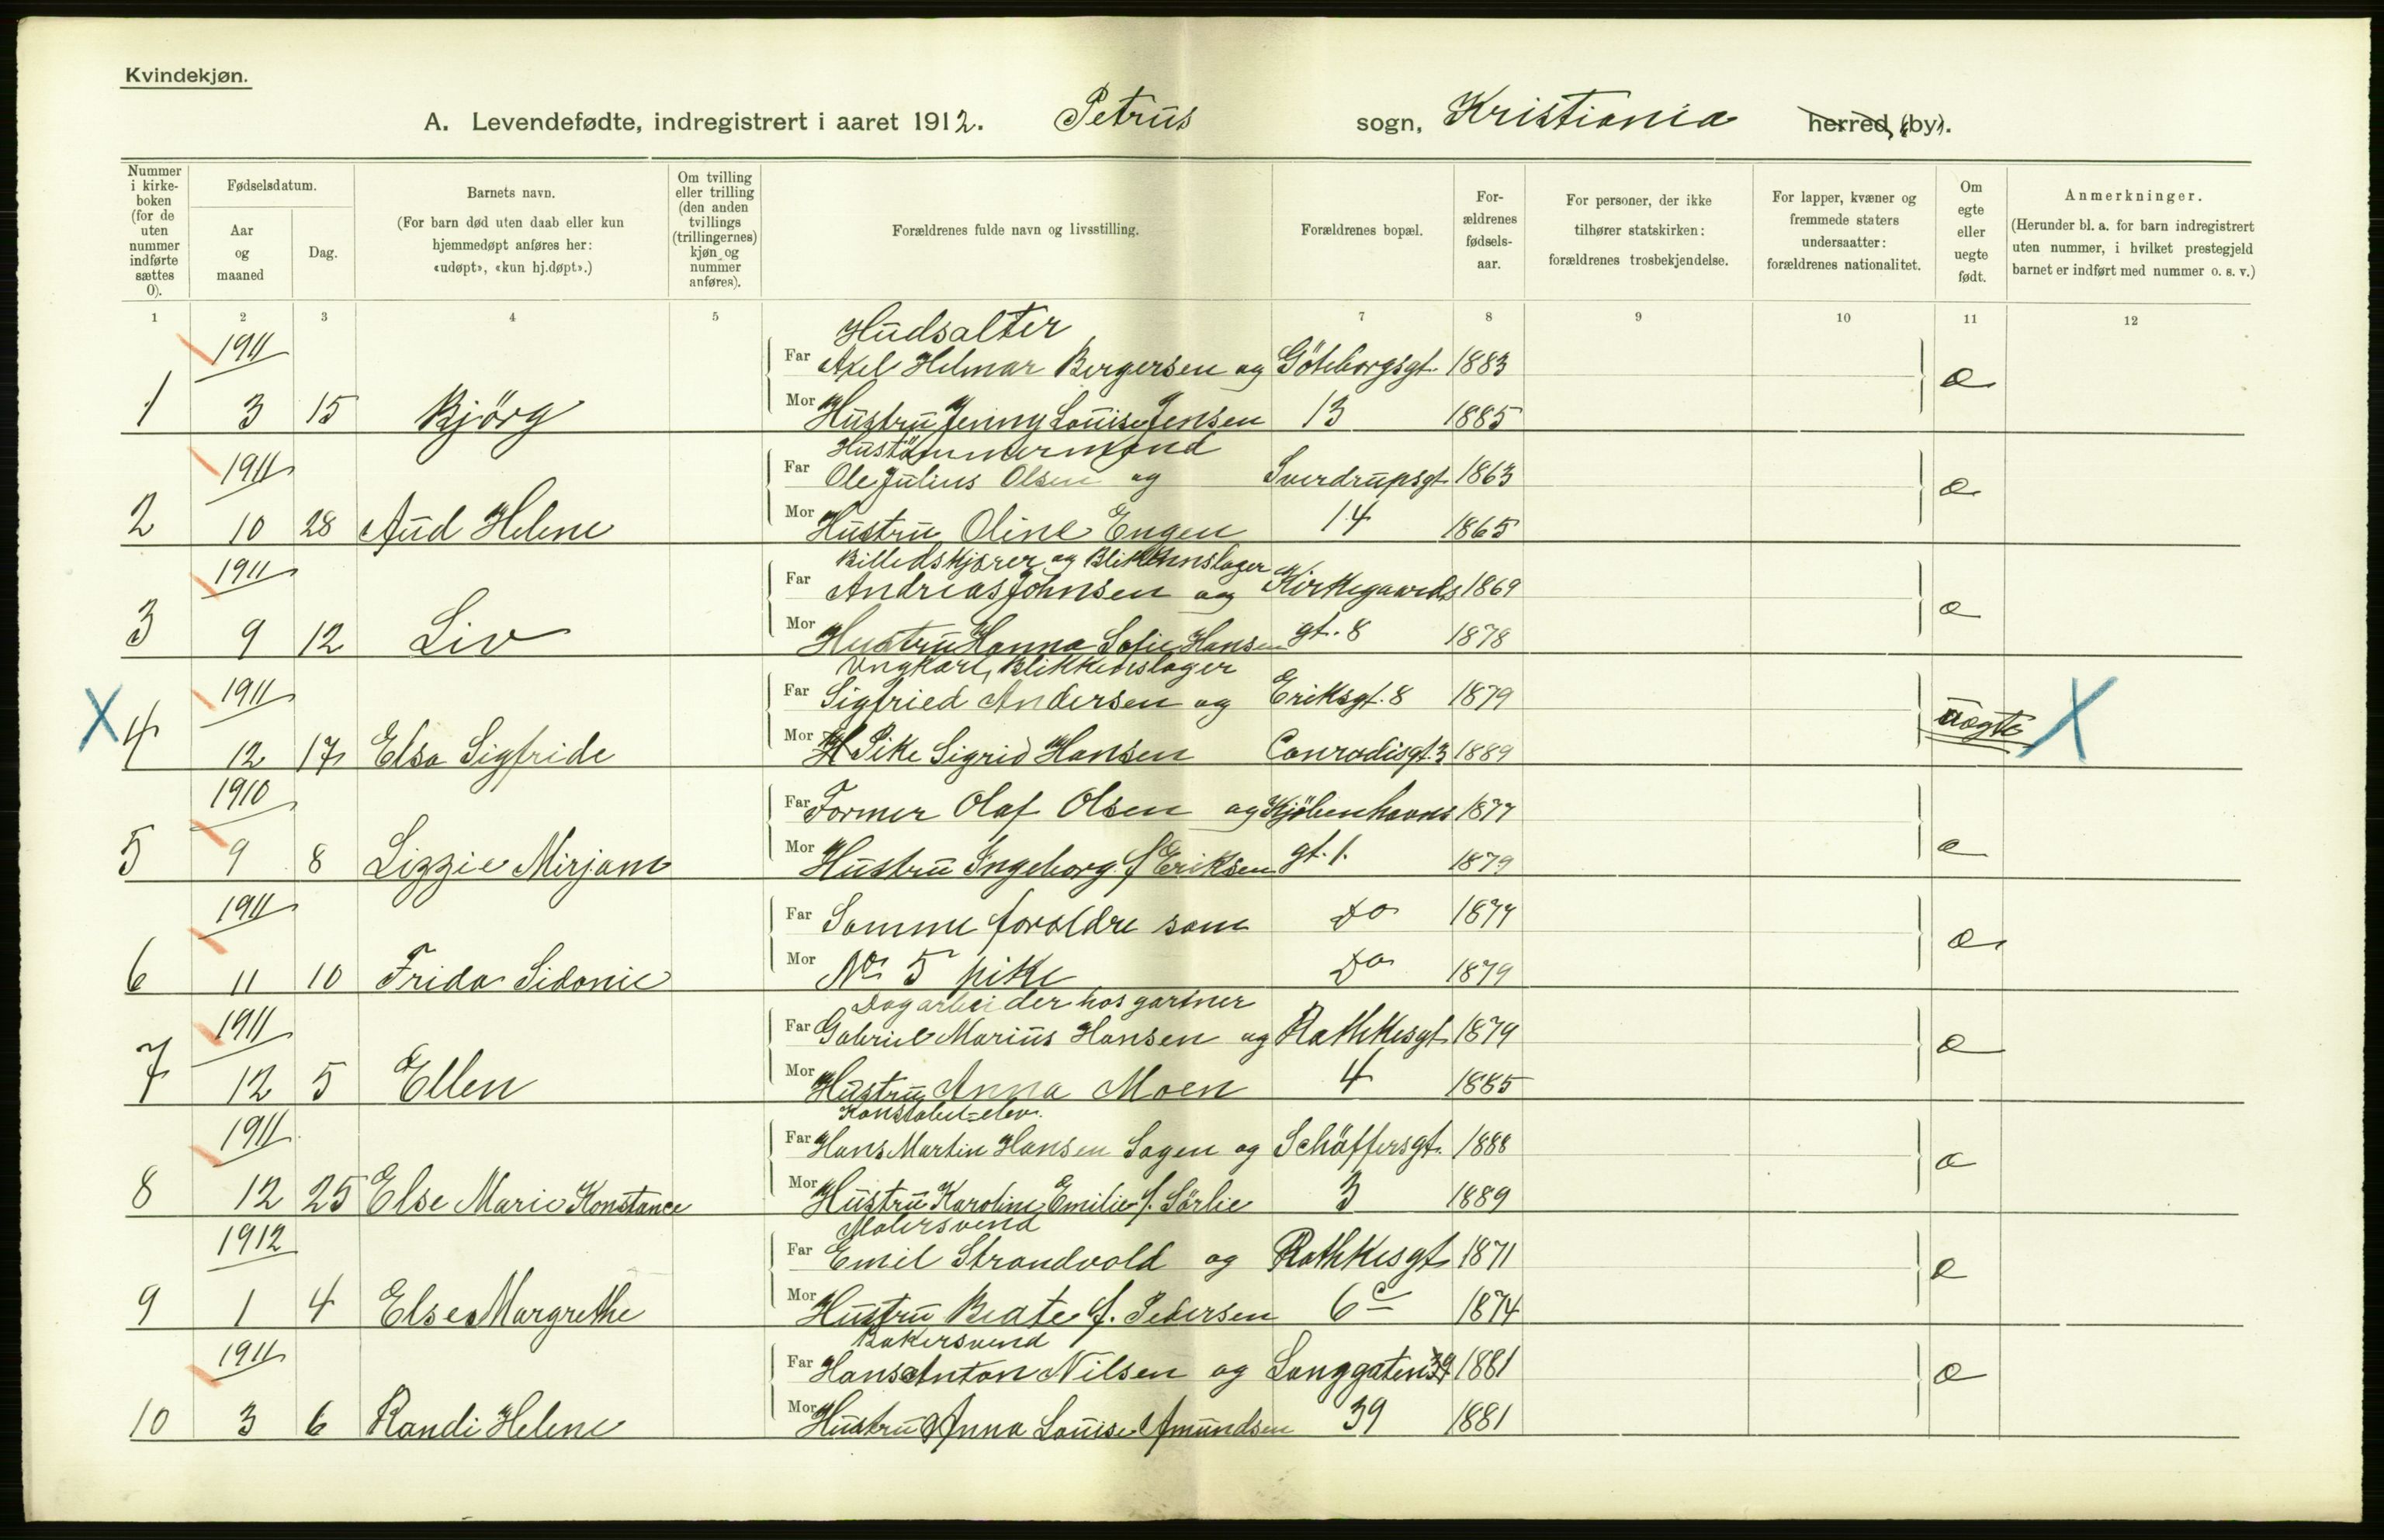 Kvindekjøn.
A. Levendefødte, indregistrert i aaret 1912. Petrus sogn, Kristiania herred, (by).
Nummer i kirke-boken (for de uten nummer indførte sættes 0).
Fødselsdatum.
Aar og maaned
Dag.
Barnets navn.
(For barn død uten daab eller kun hjemmedøpt anføres her: «udøpt», «kun hj.døpt».)
Om tvilling eller trilling (den anden tvillings (trillingernes) kjøn og nummer anføres).
Forældrenes fulde navn og livsstilling.
Forældrenes bopæl.
For-ældrenes fødsels-aar.
For personer, der ikke tilhører statskirken: forældrenes trosbekjendelse.
For lapper, kvæner og fremmede staters undersaatter: forældrenes nationalitet.
Om egte eller uegte født.
Anmerkninger.
(Herunder bl. a. for barn indregistrert uten nummer, i hvilket prestegjeld barnet er indført med nummer o. s. v.)
1 2 3 4 5 7 8 9 10 11 12
Hudsalter
1911 Far Axel Helmar Bergersen og Göteborgsgt. 1883 e
1 3 15 Björg Mor Hustru Jenny Louise Jensen 13 1885
Hustömmermand
1911 Far Ole Julius Olsen og Sverdrupsgt 1863 e
2 10 28 Aud Helene Mor Hustru Oline Engen 14 1865
Billedskjærer og Blikkenslager
1911 Far Andreas Johnsen og Kirkegaards 1869 e
3 9 12 Liv Mor Hustru Hanna Sofie Hansen gt. 8 1878
Ungkarl, Blikkenslager
1911 Far Sigfried Andersen og Eriksgt. 8 1879 uegte X
X 4 12 17 Elsa Sigfride Mor Pike Sigrid Hansen Conradisgt. 3 1889
1910 Far Former Olaf Olsen og Kjöbenhavns 1877
5 9 8 Lizzie Mirjam Mor Hustru Ingeborg f Eriksen gt. 1. 1879 e
1911 Far Samme forældre som Do 1877 e
6 11 10 Frida Sidonie Mor No 5 pike Do 1879
Dagarbeider hos gartner
1911 Far Gabriel Marius Hansen og Rathkesgt 1879 e
7 12 5 Ellen Mor Hustru Anna Moen 4 1885
Konstabel-elev.
1911 Far Hans Martin Hansen Sagen og Schäffersgt. 1888 e
8 12 25 Else Marie Konstance Mor Hustru Karoline Emilie f. Sörlie 3 1889
Malersvend
1912 Far Emil Strandvold og Rathkesgt 1871 e
9 1 4 Else Margrethe Mor Hustru Beate f. Pedersen 6c 1874
Bakersvend
1911 Far Hans Anton Nilsen og Langgaten 39 1881 e
10 3 6 Randi Helene Mor Hustru Anna Louise Amundsen 39 1881